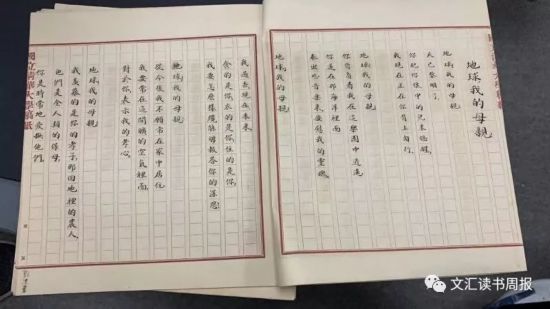 地球我的母親
地球我的母親
天已黎明了
你把你懷中的兒來搖醒
我現在正在你背上匍行
地球我的母親
你背負着我在這樂園中逍遙
你還在那海洋裡面
奏出些音樂來安慰我的靈魂
地球我的母親
我過去現在未來
食的是你衣的是你住的是你
我要怎麼樣纔能夠報答你的深恩
地球我的母親
從今後我不願常在家中居住
我要常在這開曠的空氣裡面
對於你表示我的孝心
地球我的母親
我羨慕的是你的孝子那田地裡的農人
他們是全人類的保母
你是時常地愛撫他們
國立清華大學稿紙
文汇读书周报